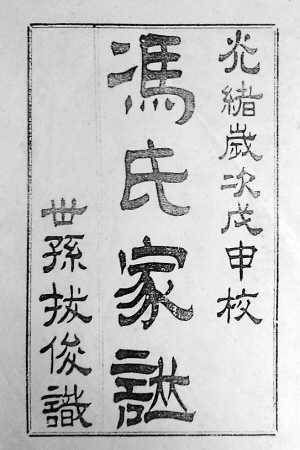 光緒歲次戊申校
馮氏家譜
世孫拔俊識